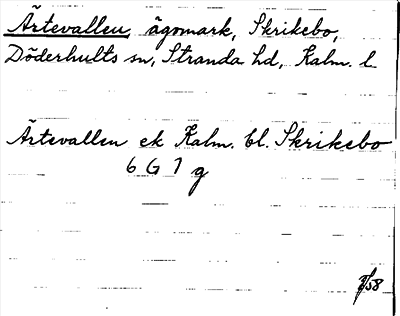 Ärtevallen, ägomark, Skrikebo,
Döderhults sn, Stranda hd, Kalm. l.
Ärtevallen ek Kalm. bl. Skrikebo
6 G 7 g